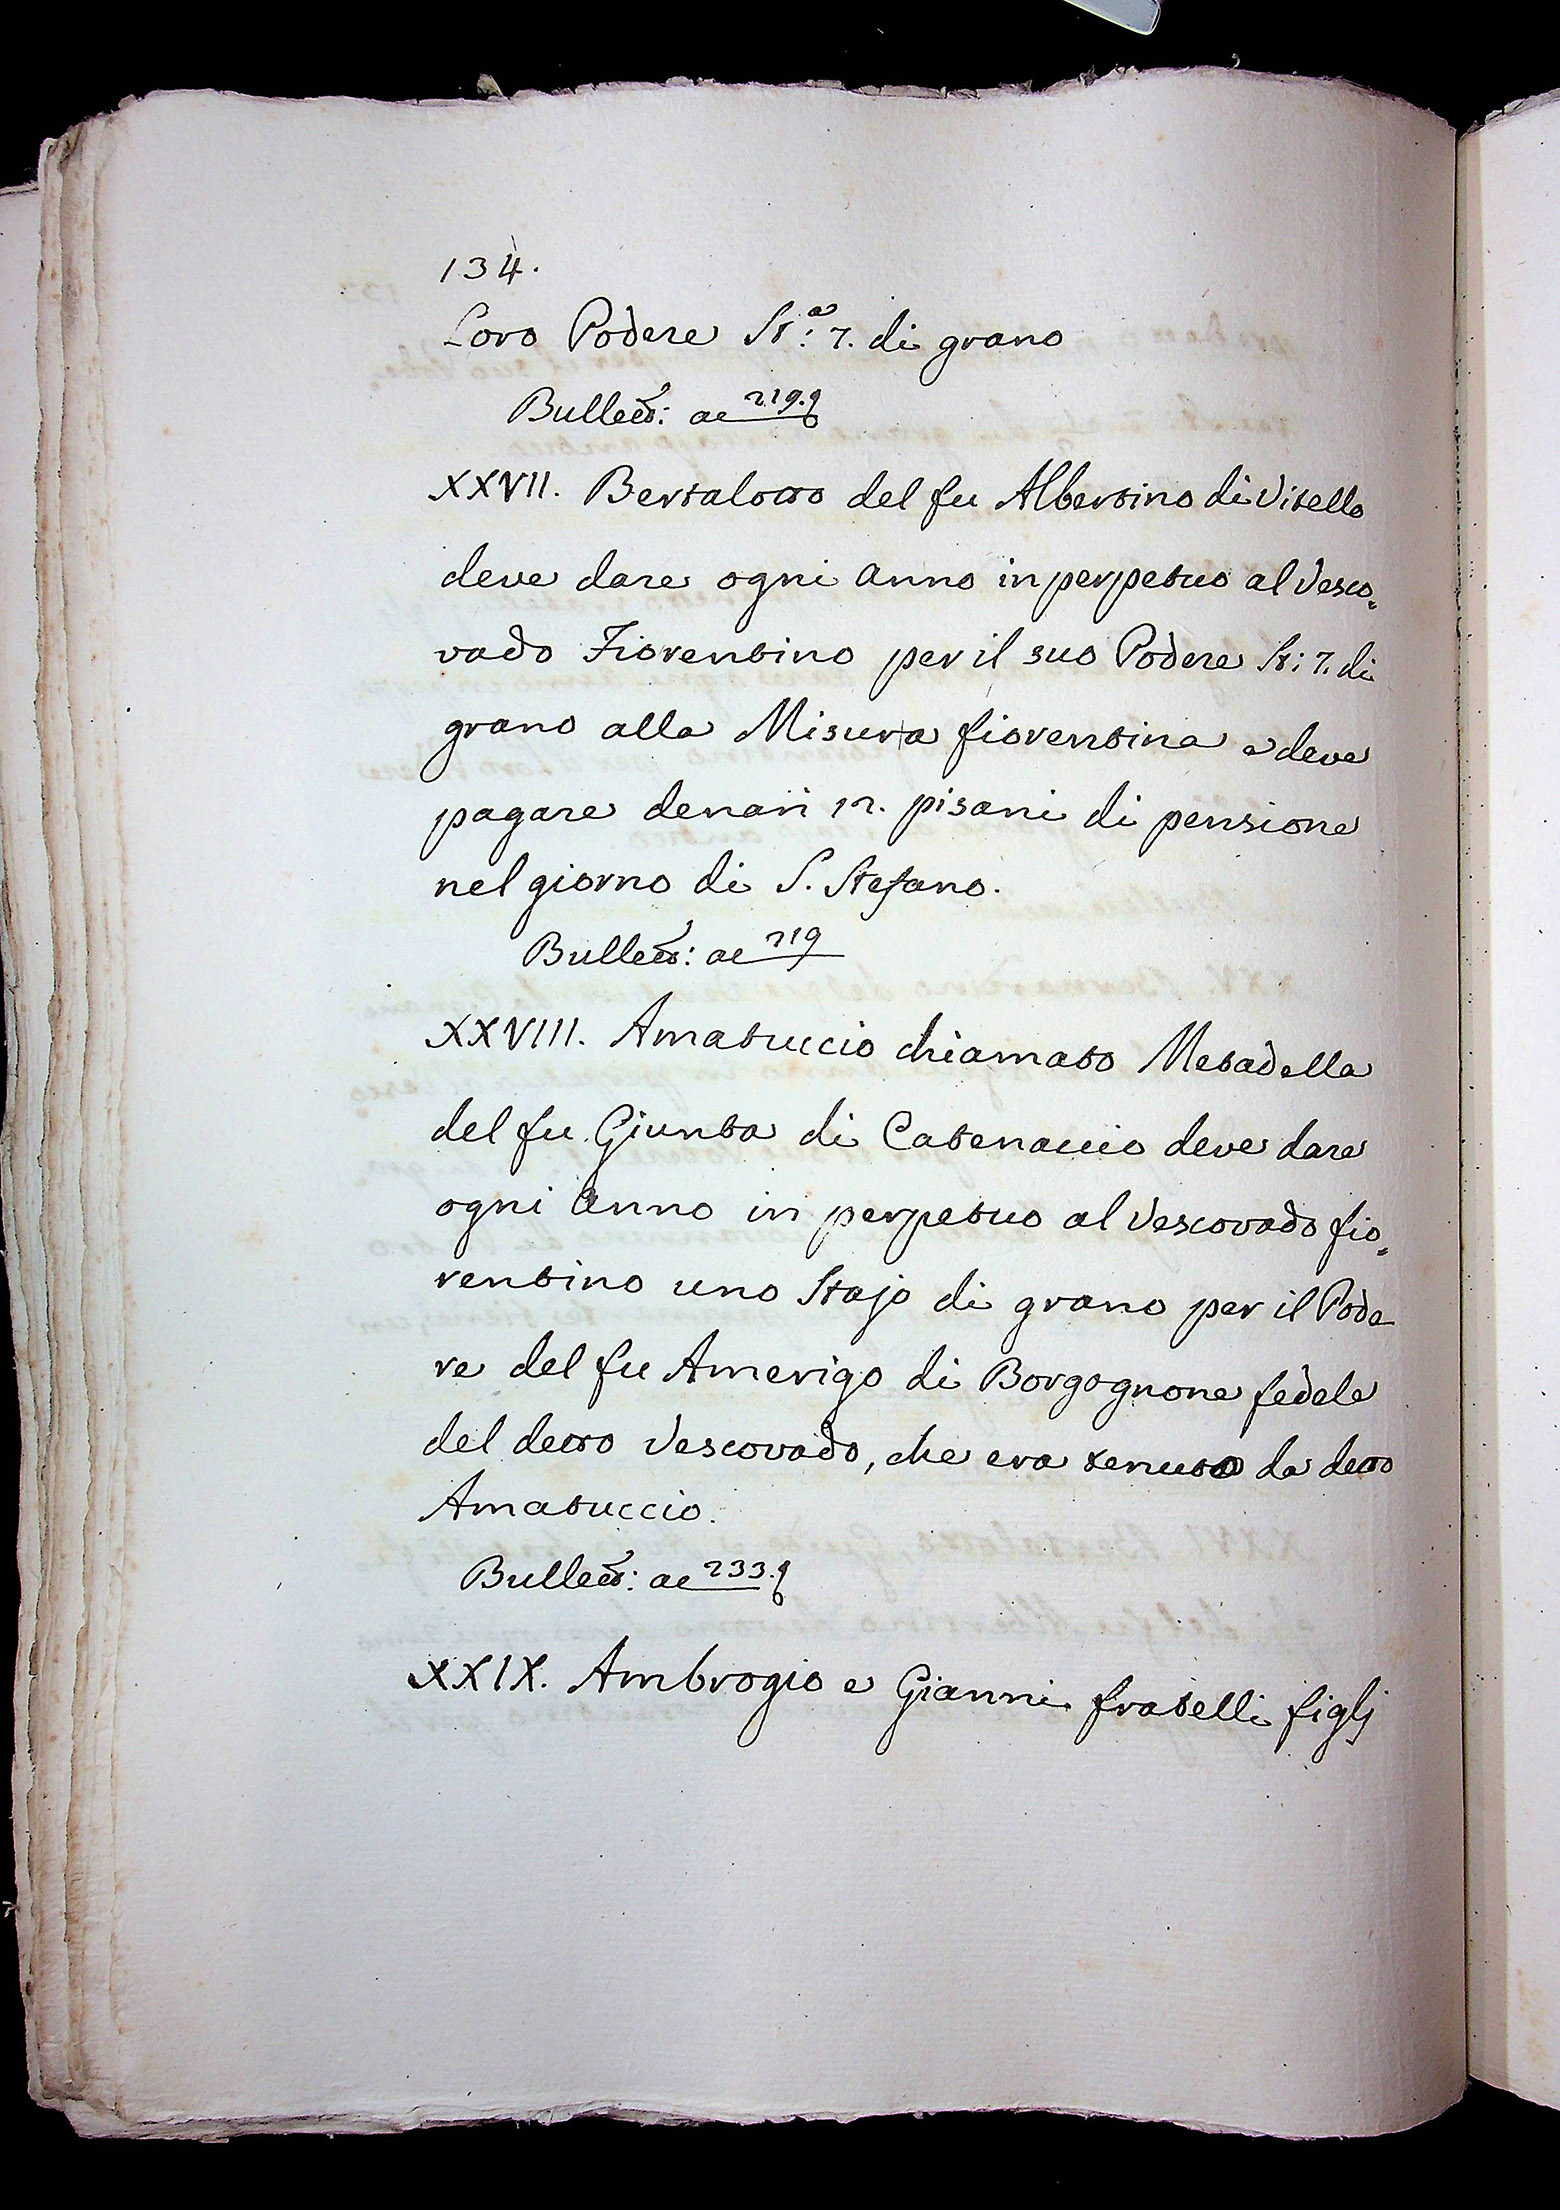 134.
Loro Podere St:ᵃ 2. di grano
Bullett: ac 219.
XXVII. Bertalotto del fu Albertino di Vitello
deve dare ogni anno in perpetuo al Vesco=
vado Fiorentino per il suo Podere St: 2. di
grano alla Misura fiorentina e deve
pagare denari 12. pisani di pensione
nel giorno di S. Stefano.
Bullett: ac 219
XXVIII. Amatuccio chiamato Metadella
del fu Giunta di Catenaccio deve dare
ogni anno in perpetuo al Vescovado fio=
rentino uno Stajo di grano per il Pode
re del fu Amerigo di Borgognone fedele
del detto Vescovado, che era tenuto da detto
Amatuccio.
Bullett: ac 233.
XXIX. Ambrogio e Gianni fratelli figlj